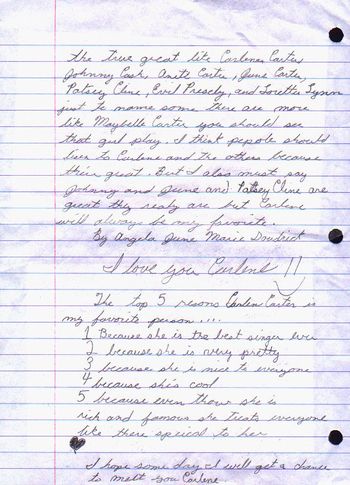 the true great like Carlenes Carter
Johnny Cash, Anita Carter, June Carter,
Patsey Cline, Evil Presely, and Loretta Lynn
just to name some there are more
like Maybelle Carter you should see
that gurl play. I think pepole should
lisen to Carlene and the others because
their great. But I also must say
Johnny and June and Patsey Cline are
great they realy are but Carlene
will always be my favorite.
By Angela June Marie
I love you Carlene !!
The top 5 resons Carlen Carter is
my favorite person....
1 Because she is the best singer ever
2 because she is very pretty
3 because she is nice to everyone
4 because she's cool
5 because even thow she is
rich and famous she treats everyone
like there speical to her
I hope some day I will get a chance
to meatt you Carlene